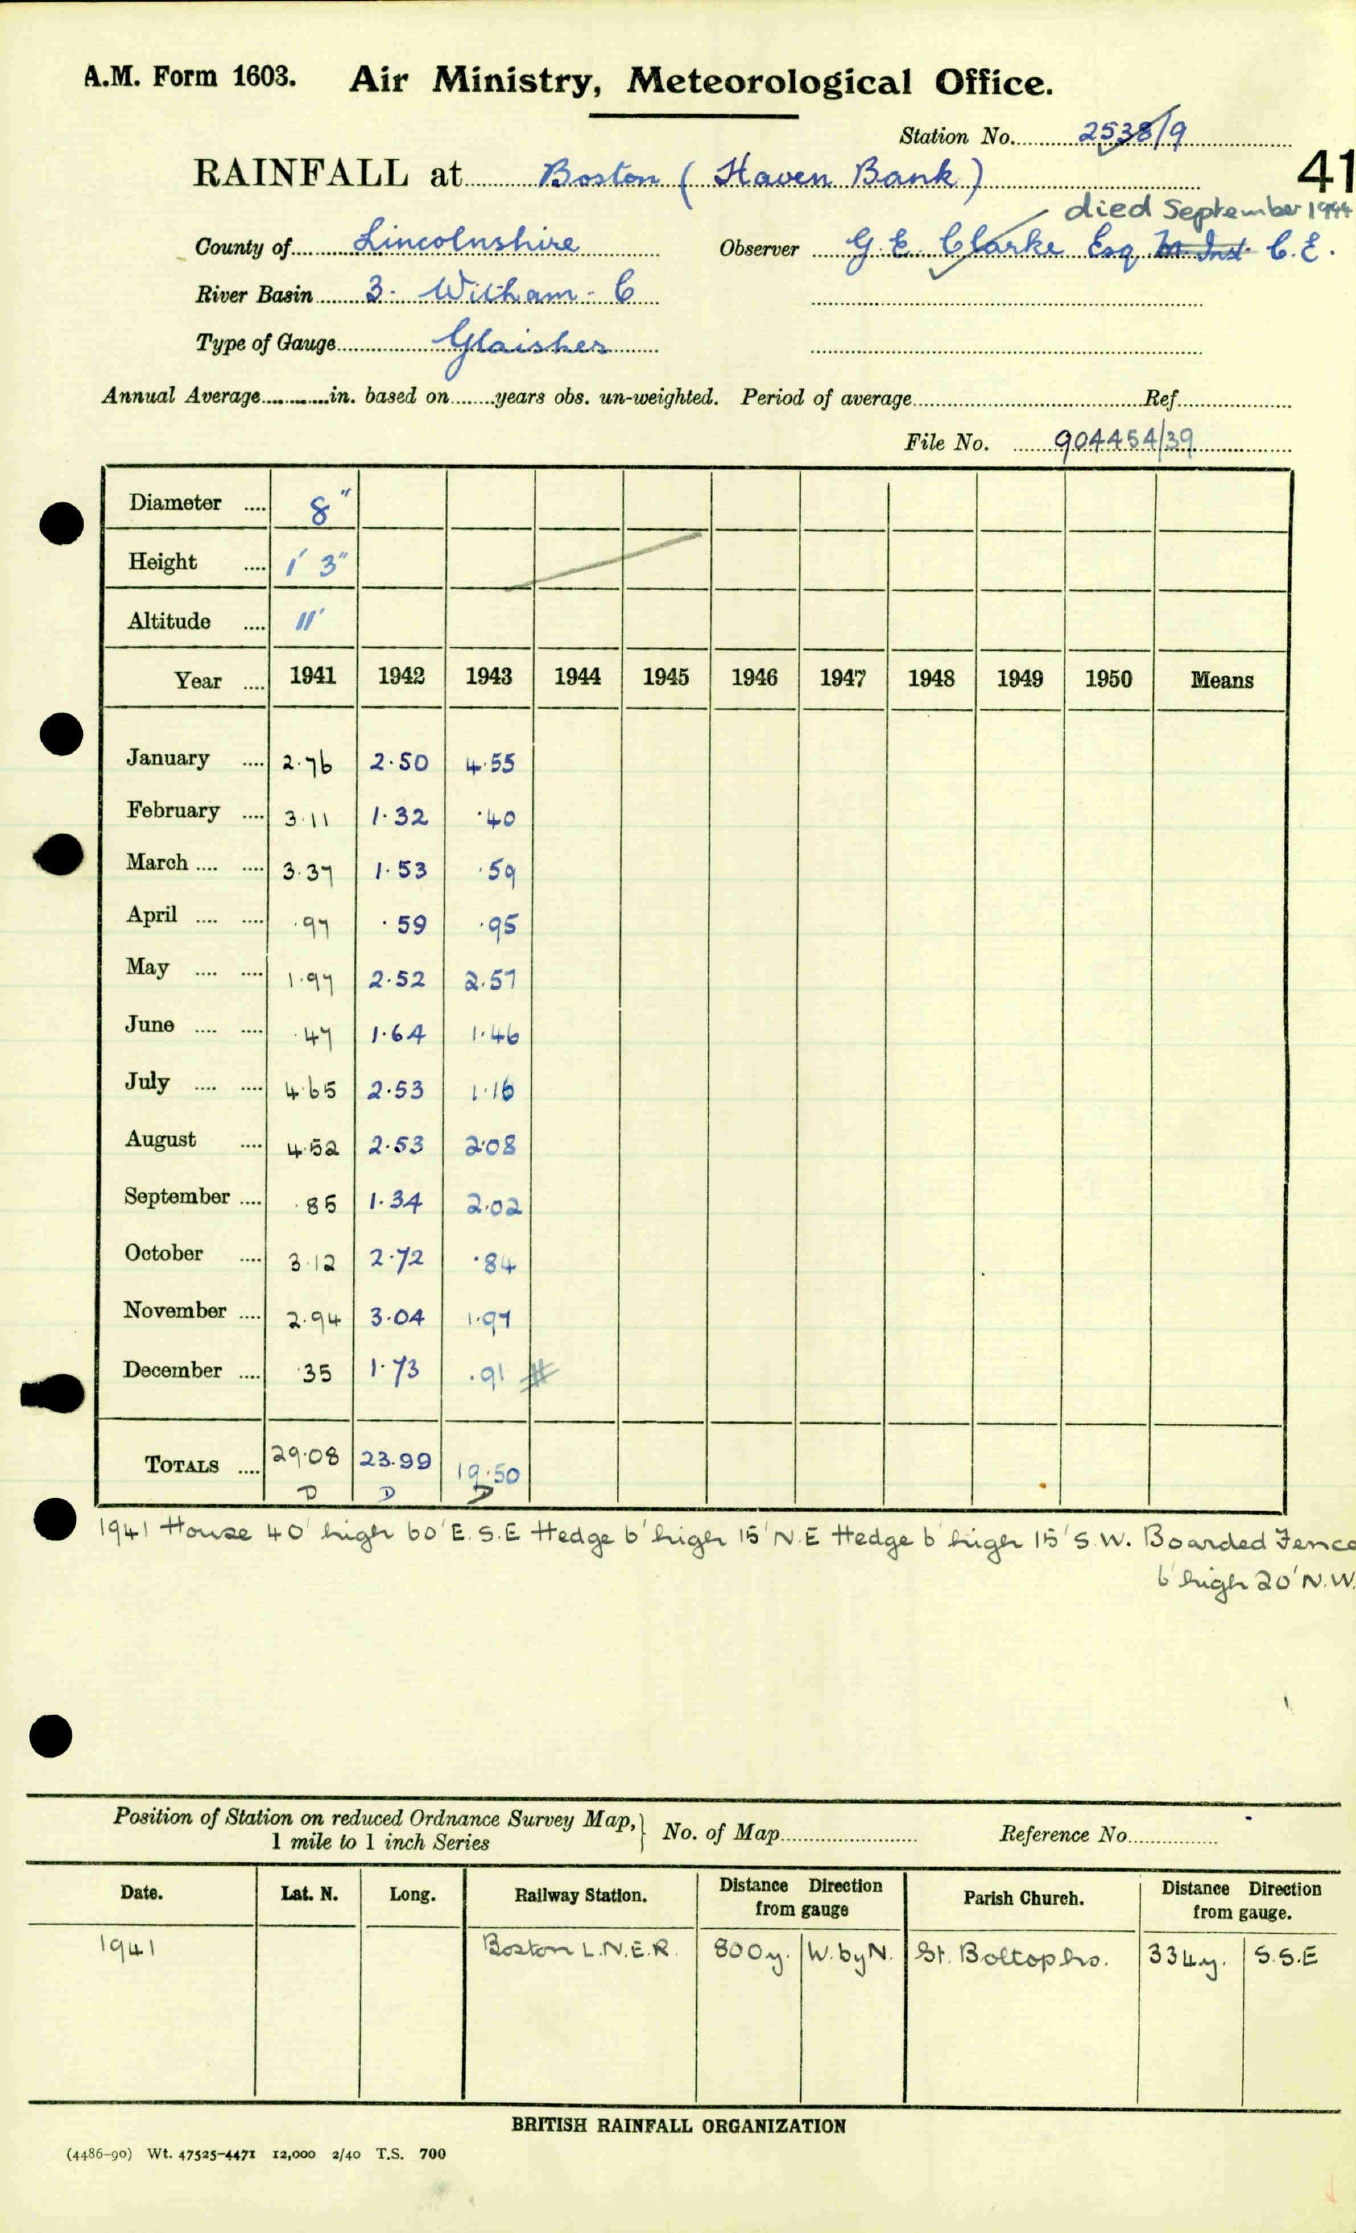 A.M. Form 1603. Air Ministry, Meteorological Office.
Station No. 2538/9
41
RAINFALL at Boston (Haven Bank)
died September 1944
County of Lincolnshire Observer G. E. Clarke Esq M Inst C. E.
River Basin 3. Witham - C
Type of Gauge Glaisher
Annual Average in. based on years obs. un-weighted. Period of average Ref.
File No. 904454/39
Diameter .... 8"
Height .... 1' 3"
Altitude .... 11'
Year .... 1941 1942 1943 1944 1945 1946 1947 1948 1949 1950 Means
January .... 2.76 2.50 4.55
February .... 3.11 1.32 .40
March .... .... 3.37 1.53 .59
April .... .... .97 .59 .95
May .... .... 1.97 2.52 2.57
June .... .... .47 1.64 1.46
July .... .... 4.65 2.53 1.16
August .... 4.52 2.53 2.08
September .... .85 1.34 2.02
October .... 3.12 2.72 .84
November .... 2.94 3.04 1.97
December .... .35 1.73 .91 #
TOTALS .... 29.08 23.99 19.50
D D D
1941 House 40' high 60' E.S.E Hedge 6' high 15' N.E Hedge 6' high 15' S.W. Boarded Fence
6' high 20' N.W.
Position of Station on reduced Ordnance Survey Map,
1 mile to 1 inch Series } No. of Map Reference No.
Date. Lat. N. Long. Railway Station. Distance Direction from gauge Parish Church. Distance Direction from gauge.
1941 Boston L.N.E.R. 800y. W. by N. St. Boltophs. 334y. S.S.E
BRITISH RAINFALL ORGANIZATION
(4486-90) Wt. 47525-4471 12,000 2/40 T.S. 700